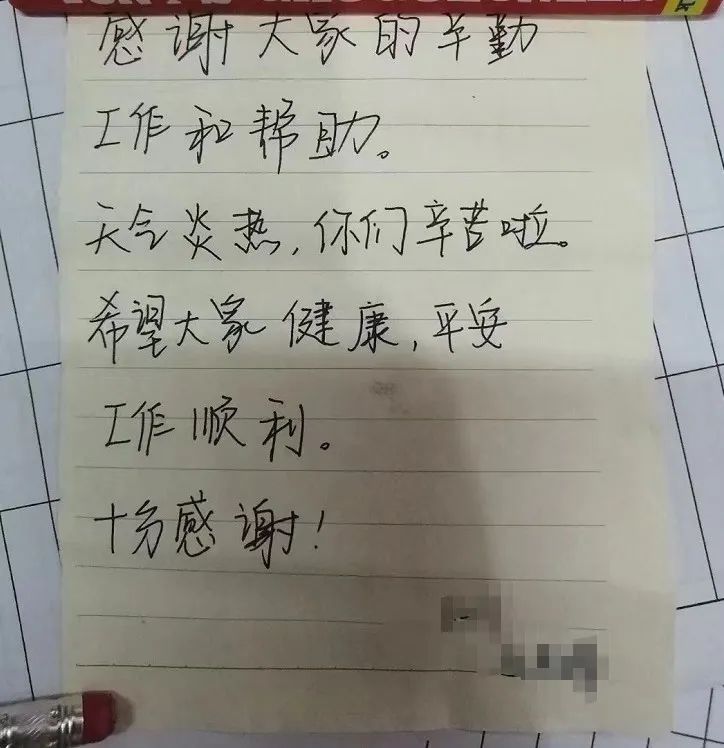 感谢大家的辛勤
工作和帮助。
天气炎热,你们辛苦啦。
希望大家健康,平安
工作顺利。
十分感谢!